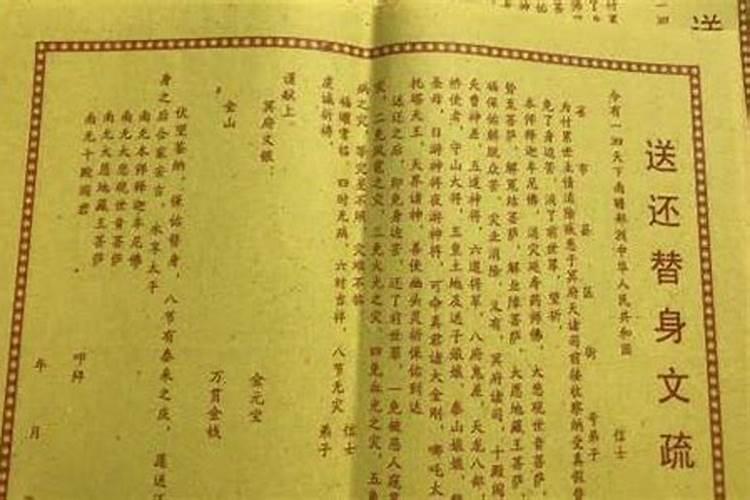 送还替身文疏
今有一四天下南赡部洲中华人民共和国
省 市 县 区 街 号弟子 信士
为付累世主情消除
冥府天诸司前接收察纳受真假替
免了身边苦,消了前世罪,望祈
本师释迦牟尼佛,消灾延寿药师佛,大悲观世音菩萨
势至菩萨,解冤结菩萨,解业障菩萨,大愿地藏王菩萨,
福保佑解脱众苦,灾业消除,又有,冥府诸司,十殿阎
天曹神差,五道神将,六道将军,八府鬼差,天龙八部,
桥使者,守山大将,五皇土地及送子娘娘,泰山娘娘,
圣母,日游神将夜游神将,可命真君诸大金刚,哪吒太
托塔天王,天界诸神,善使幽头灵祈保佑到达
送还之后,即免身边苦,还了前世罪,一免被恶人寇
灾,二免风雹之灾,三免火光之灾,四免血光之灾,五免
病之灾,等灾是不期,灾难不临
福曜常临 四时无病,六时吉祥,八节无灾 信士
虔诚祈祷, 弟子
谨献上
冥府文银: 金元宝
金山 万贯金钱
伏望鉴纳,保佑替身,八节有泰来之庆,
身之后合家安吉,永享太平
南无本师释迦牟尼佛
南无大悲观世音菩萨
南无大愿地藏王菩萨
南无十殿阎君
叩拜
年 月